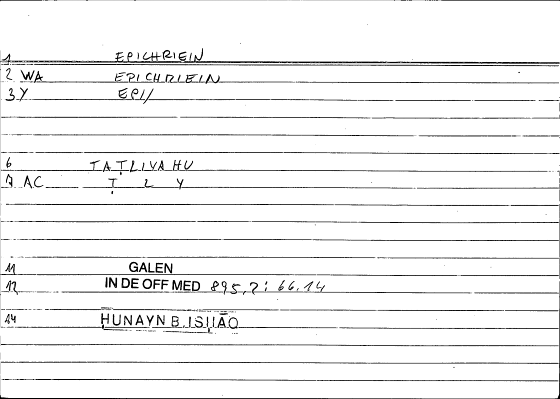 1 EPICHRIEIN
2 WA EPICHRIEIN
3 Y EPI/
6 TAṬLIYAHU
7 AC Ṭ L Y
11 GALEN
12 IN DE OFF MED 895,7: 66.14
14 ḤUNAYN B. ISḤĀQ